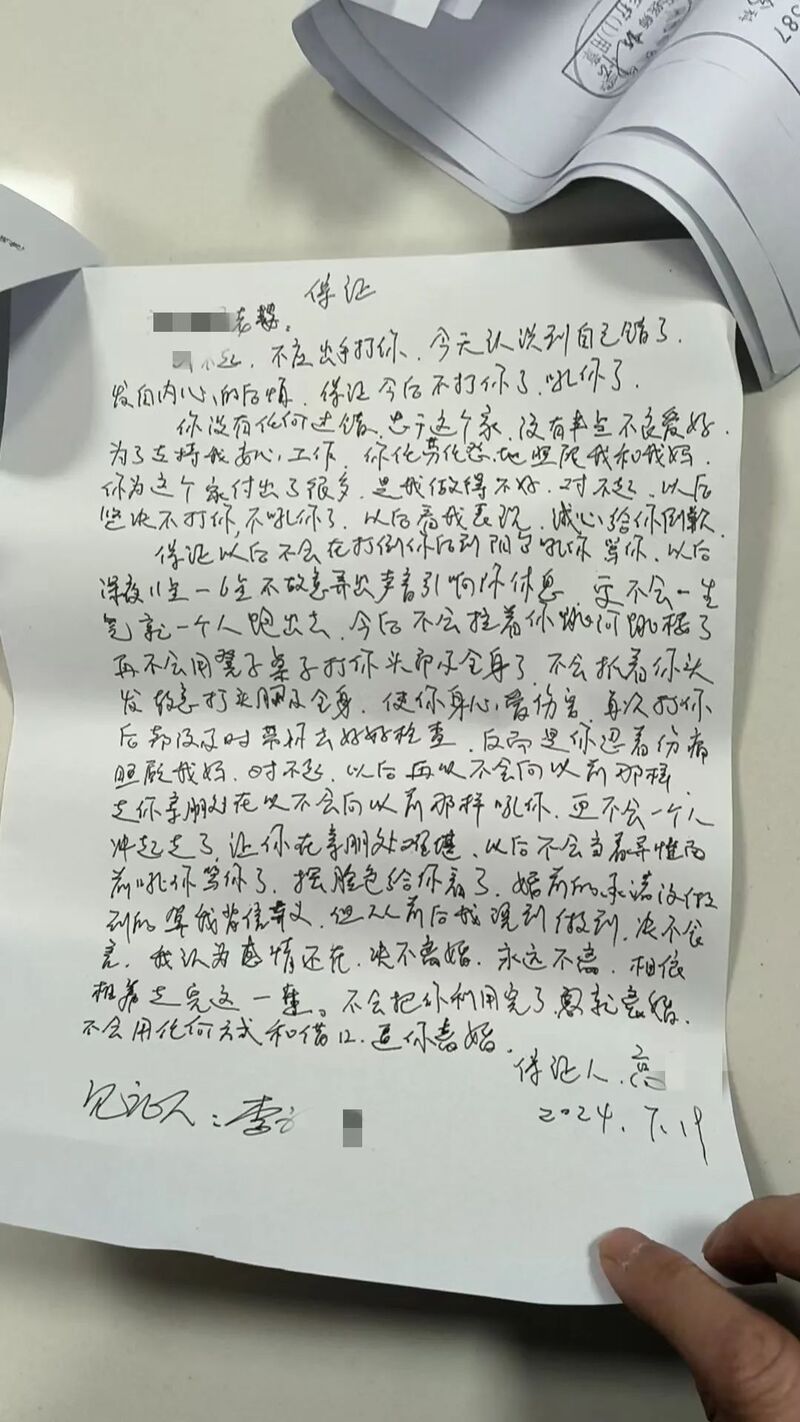 587
科
用章
保证
老婆。
不起，不应出手打你，今天认识到自己错了，
发自内心的后悔，保证今后不打你了，吼你了，
你没有任何过错，忠于这个家，没有半点不良爱好，
为了支持我安心工作，你任劳任怨地照顾我和我妈，
你为这个家付出了很多，是我做得不好，对不起，以后
坚决不打你，不吼你了，以后看我表现，诚心给你倒歉
保证以后不会在打倒你后到阳台吼你骂你，以后
深夜11点一6点不故意弄出声音引响你休息，更不会一生
气就一个人跑出去，今后不会拉着你跳河跳楼了
再不会用凳子桌子打你头部及全身了，不会抓着你头
发故意打头脑及全身，使你身心受伤害，每次打你
后都没及时带你去好好检查，反而是你忍着伤痛
照顾我妈，对不起，以后再以不会向以前那样
走你亲朋处在以不会向以前那样吼你，更不会一个人
冲起走了，让你在亲朋处难堪，以后不会当着
前吼你骂你了，摆脸色给你看了，婚前的承诺没做
到的算我背信弃义，但从前后我说到做到，决不食
言，我认为感情还在，决不离婚，永远不离，相依
相着走完这一辈。不会把你利用完了就离婚，
不会用任何方式和借口，逼你离婚，
保证人，高
见证人：李
2024.7.19